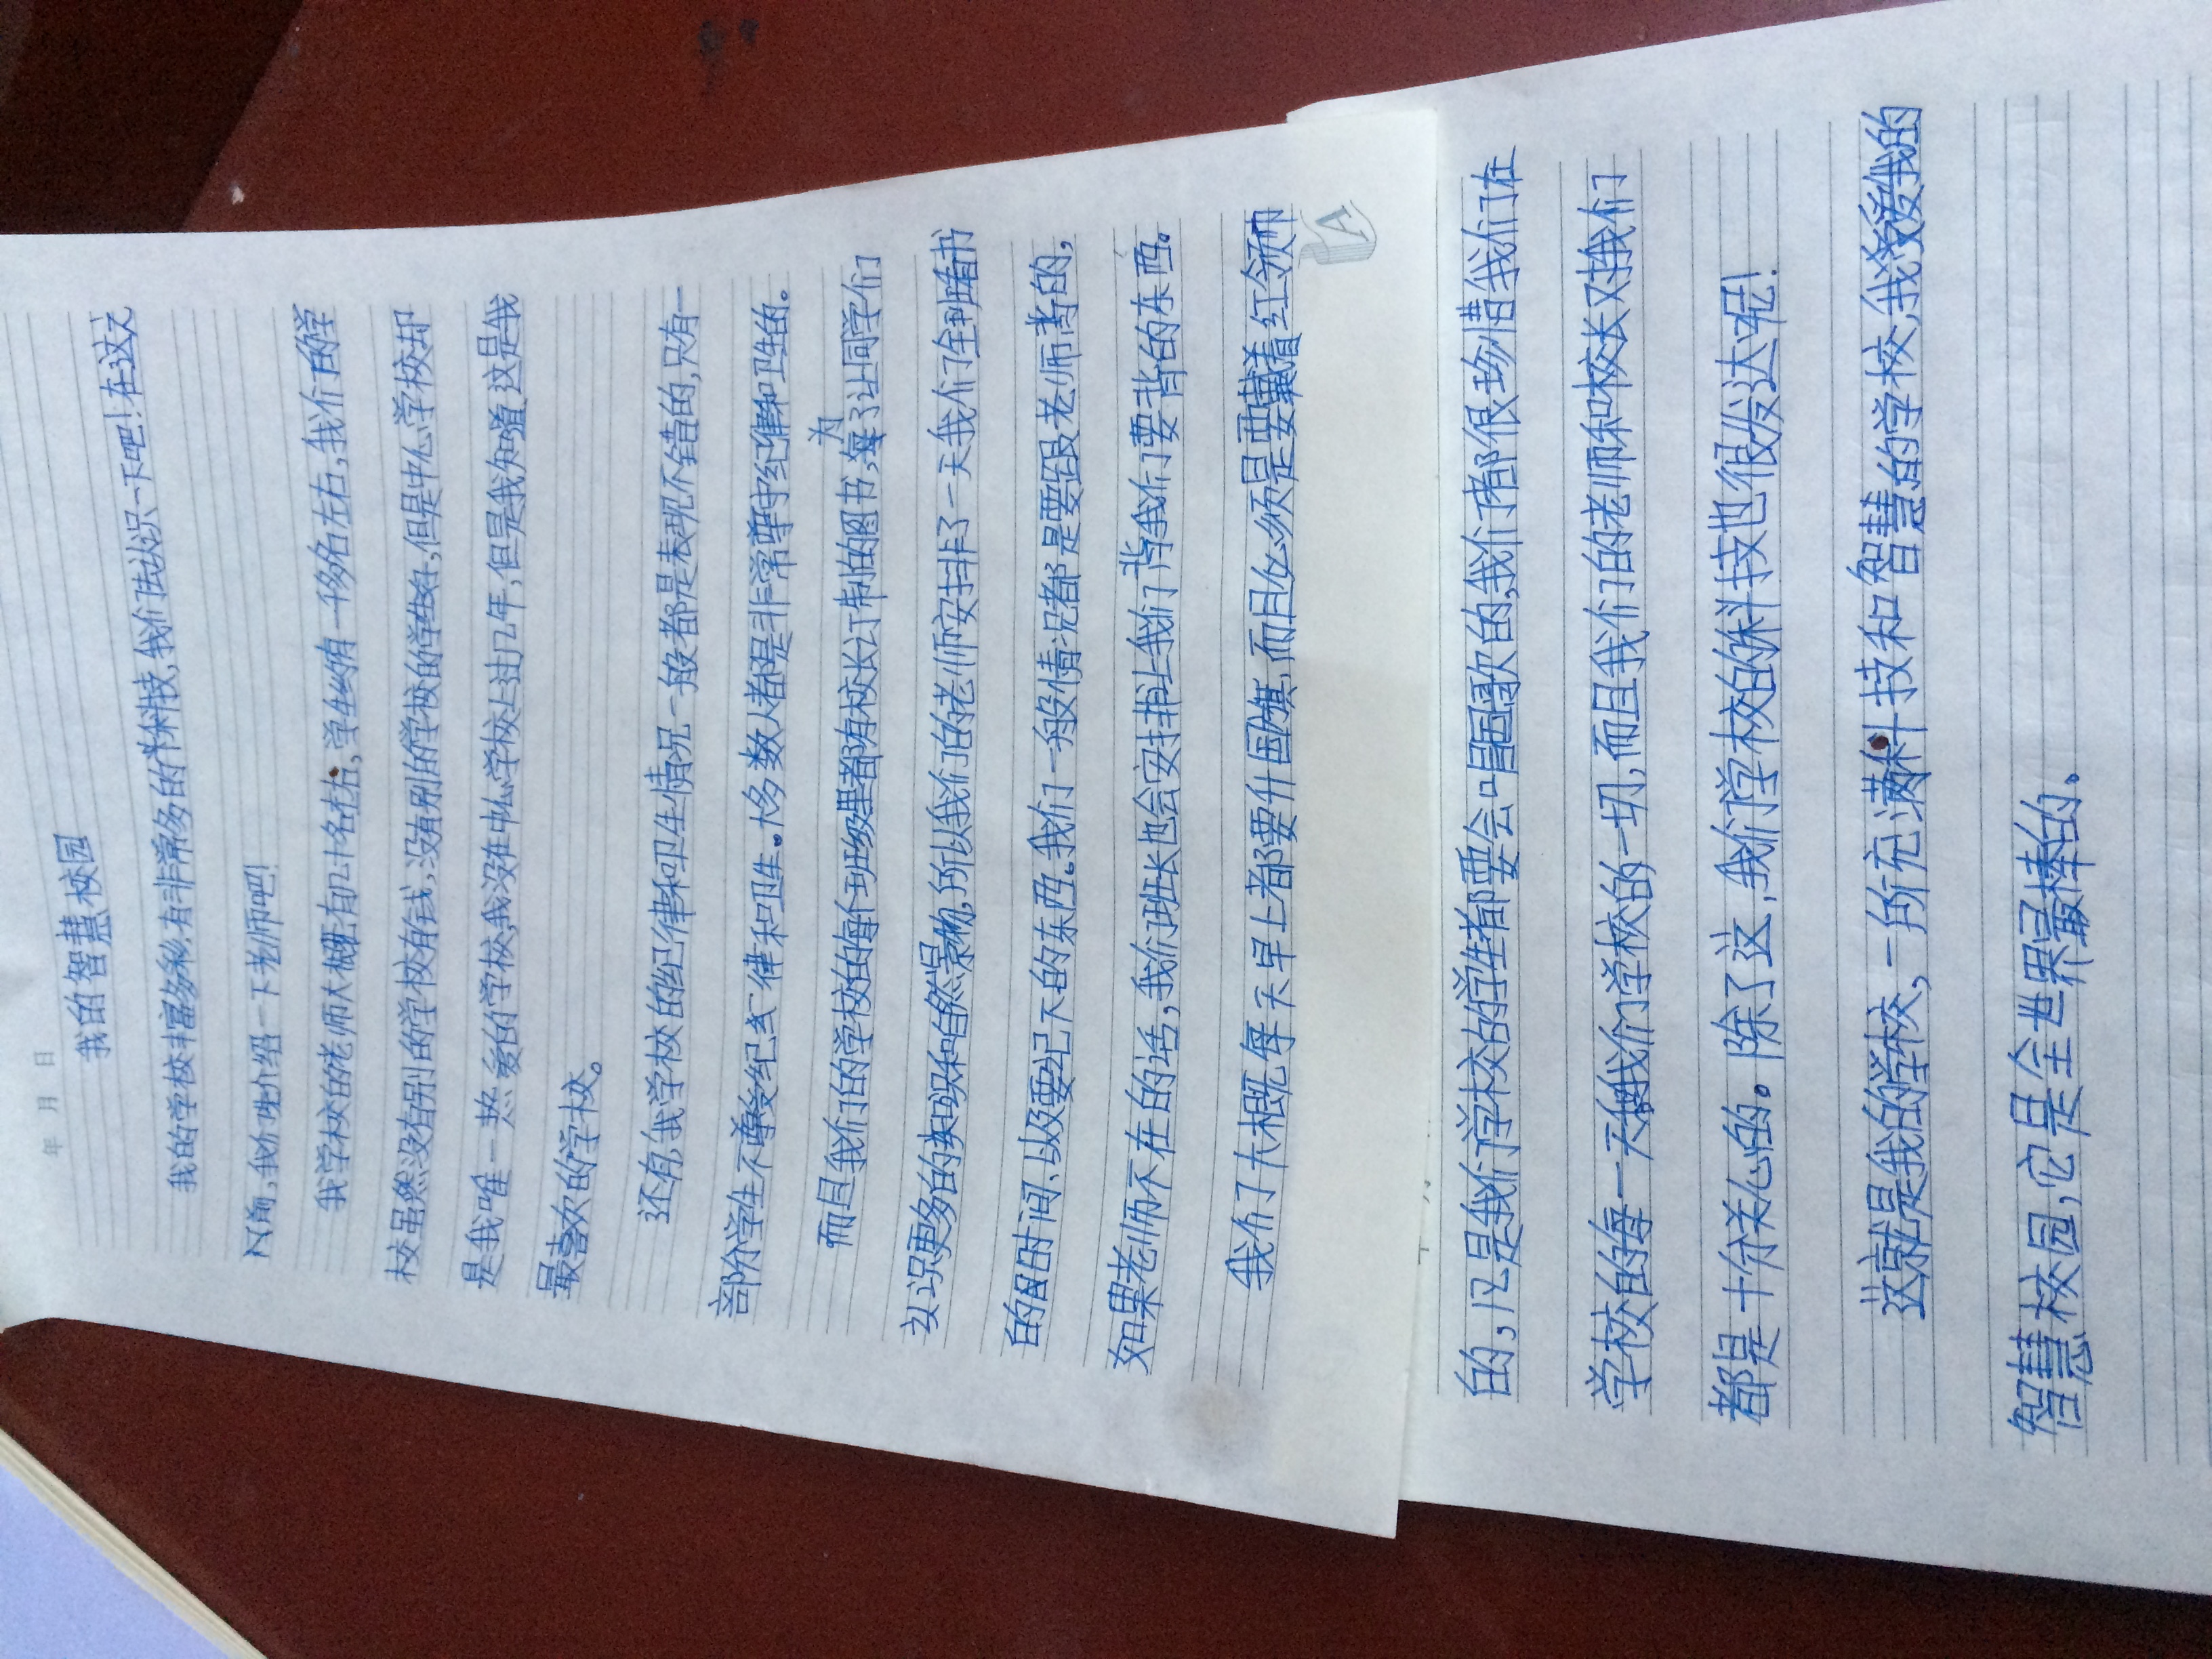 年 月 日
我的智慧校园
我的学校丰富多彩,有非常多的科技,我们去认识一下吧!在这之
前,我们先介绍一下老师吧!
我学校的老师大概有几十名左右,学生约有一千多名左右,我们的学
校虽然没有别的学校有钱,没有别的学校的学生好,但是中心学校却
是我唯一热爱的学校,我没在中心学校上过几年,但是我知道这是我
最喜欢的学校。
还有,我学校的纪律和卫生情况一般都是表现不错的,只有一
部分学生不尊受纪式律和卫生。大多数人都是非常尊守纪律和卫生的。
而且我们的学校的每个班级里都有校长订制的图书,为了让同学们
认识更多的知识和自然景物,所以我们的老师安排了一天我们全班看书
的时间,以及要纪下的东西。我们一般情况都是要跟老师背的,
如果老师不在的话,我们班长也会安排让我们背我们要背的东西。
我们大概每天早上都要升国旗,而且必须是要戴着红领巾
的,凡是我们学校的学生都要会唱国歌的,我们都很珍惜我们在
学校的每一天,我们学校的一切,而且我们的老师和校长对我们
都是十分关心的。除了这,我们学校的科技也很发达呢!
这就是我的学校,一所充满科技和智慧的学校,我爱我的
智慧校园,它是全世界最棒的。